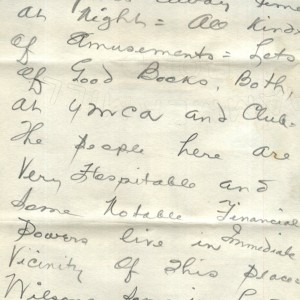 at Night = All Kind
Of Amusements = Lots
Of Good Books, Both,
at YMCA and Club-
The people here are
Very Hospitable and
Some Notable Financial
Powers live in Immediate
Vicinity Of This place
Wilson